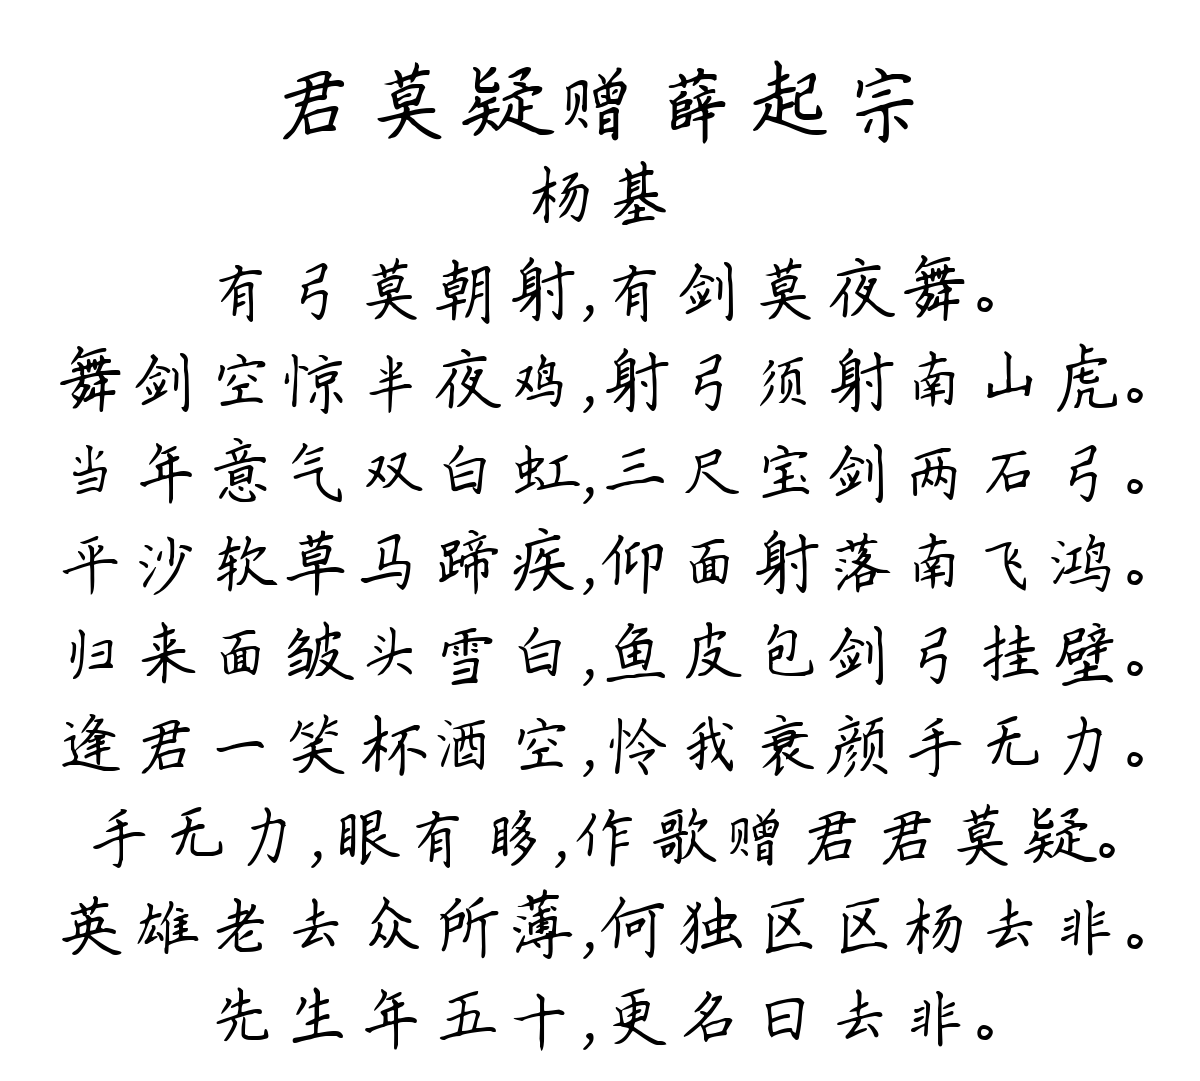 君莫疑赠薛起宗
杨基
有弓莫朝射,有剑莫夜舞。
舞剑空惊半夜鸡,射弓须射南山虎。
当年意气双白虹,三尺宝剑两石弓。
平沙软草马蹄疾,仰面射落南飞鸿。
归来面皱头雪白,鱼皮包剑弓挂壁。
逢君一笑杯酒空,怜我衰颜手无力。
手无力,眼有眵,作歌赠君君莫疑。
英雄老去众所薄,何独区区杨去非。
先生年五十,更名曰去非。